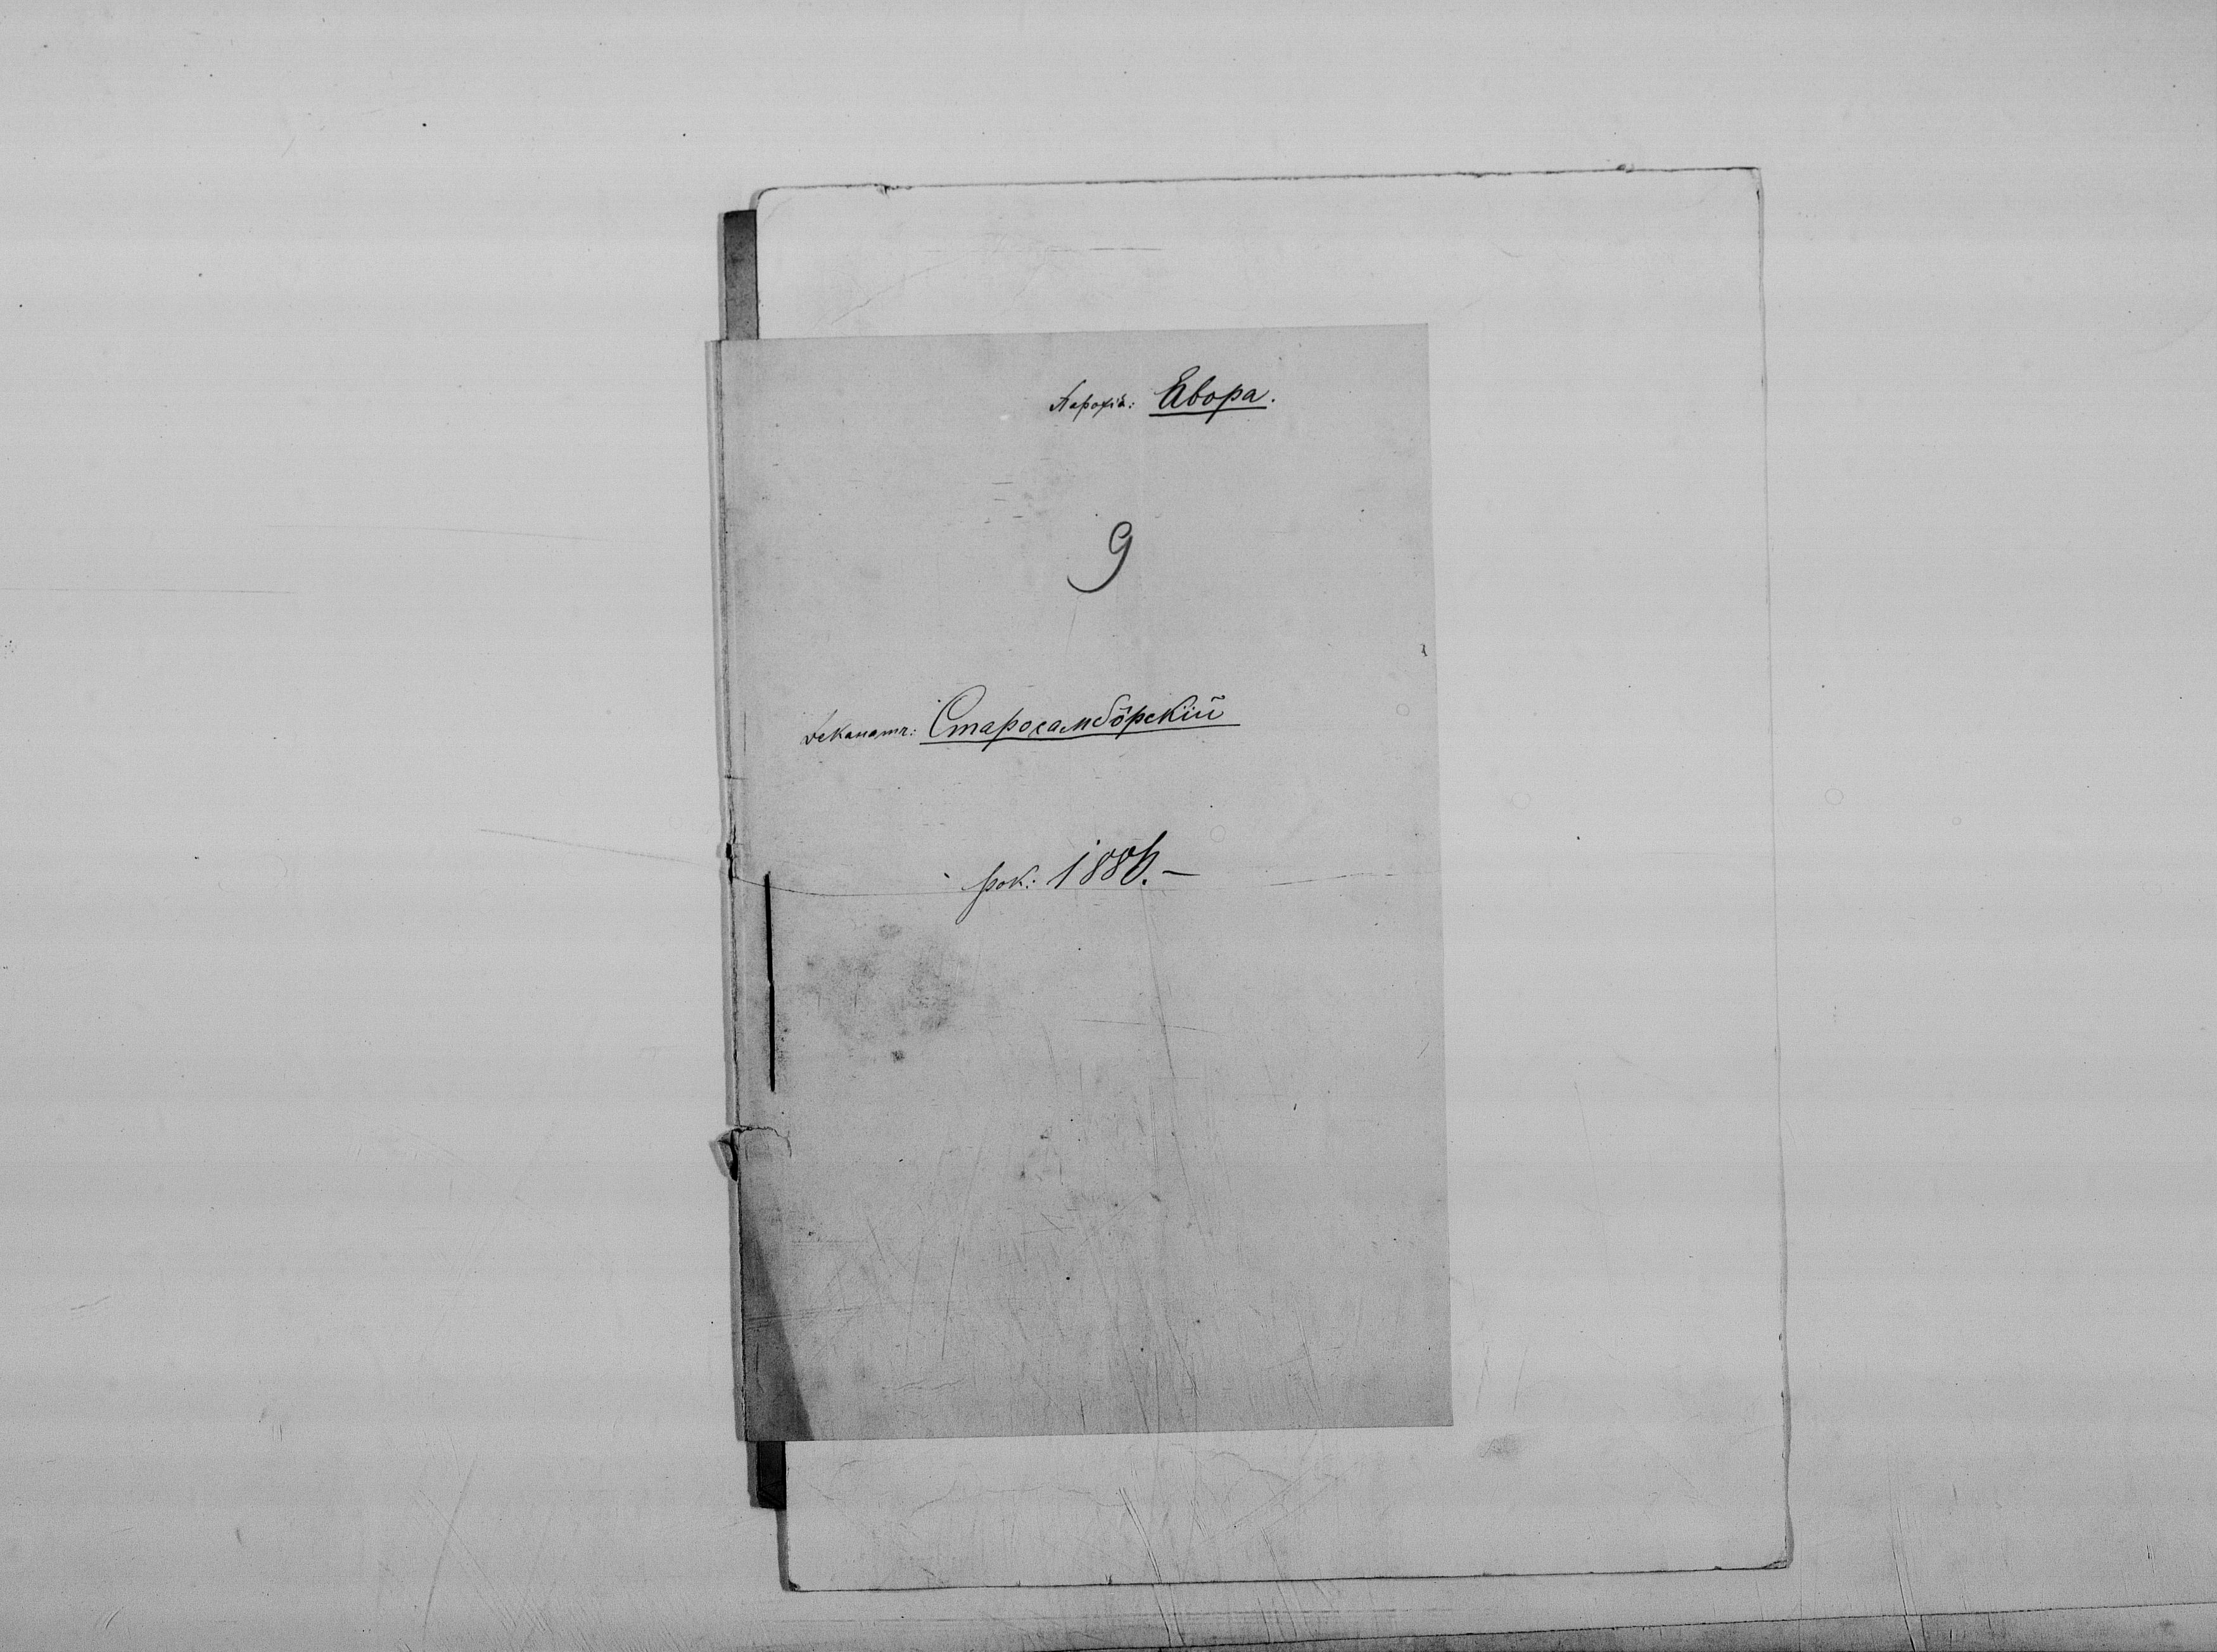 Парохія: Явора.
9
Деканатъ: Старосамбôрскій
рок: 1886.—